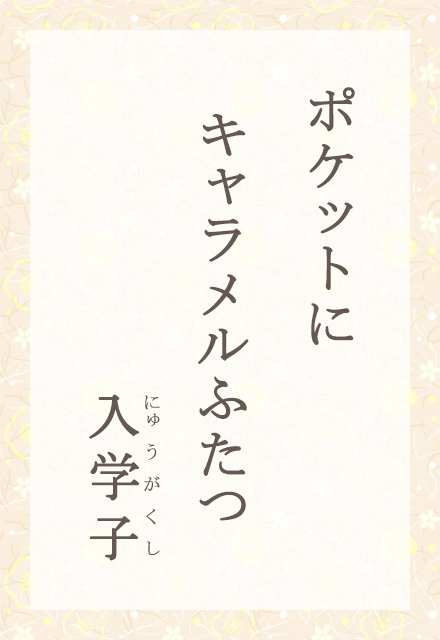 ポケットに
キャラメルふたつ
入学子
にゅうがくし